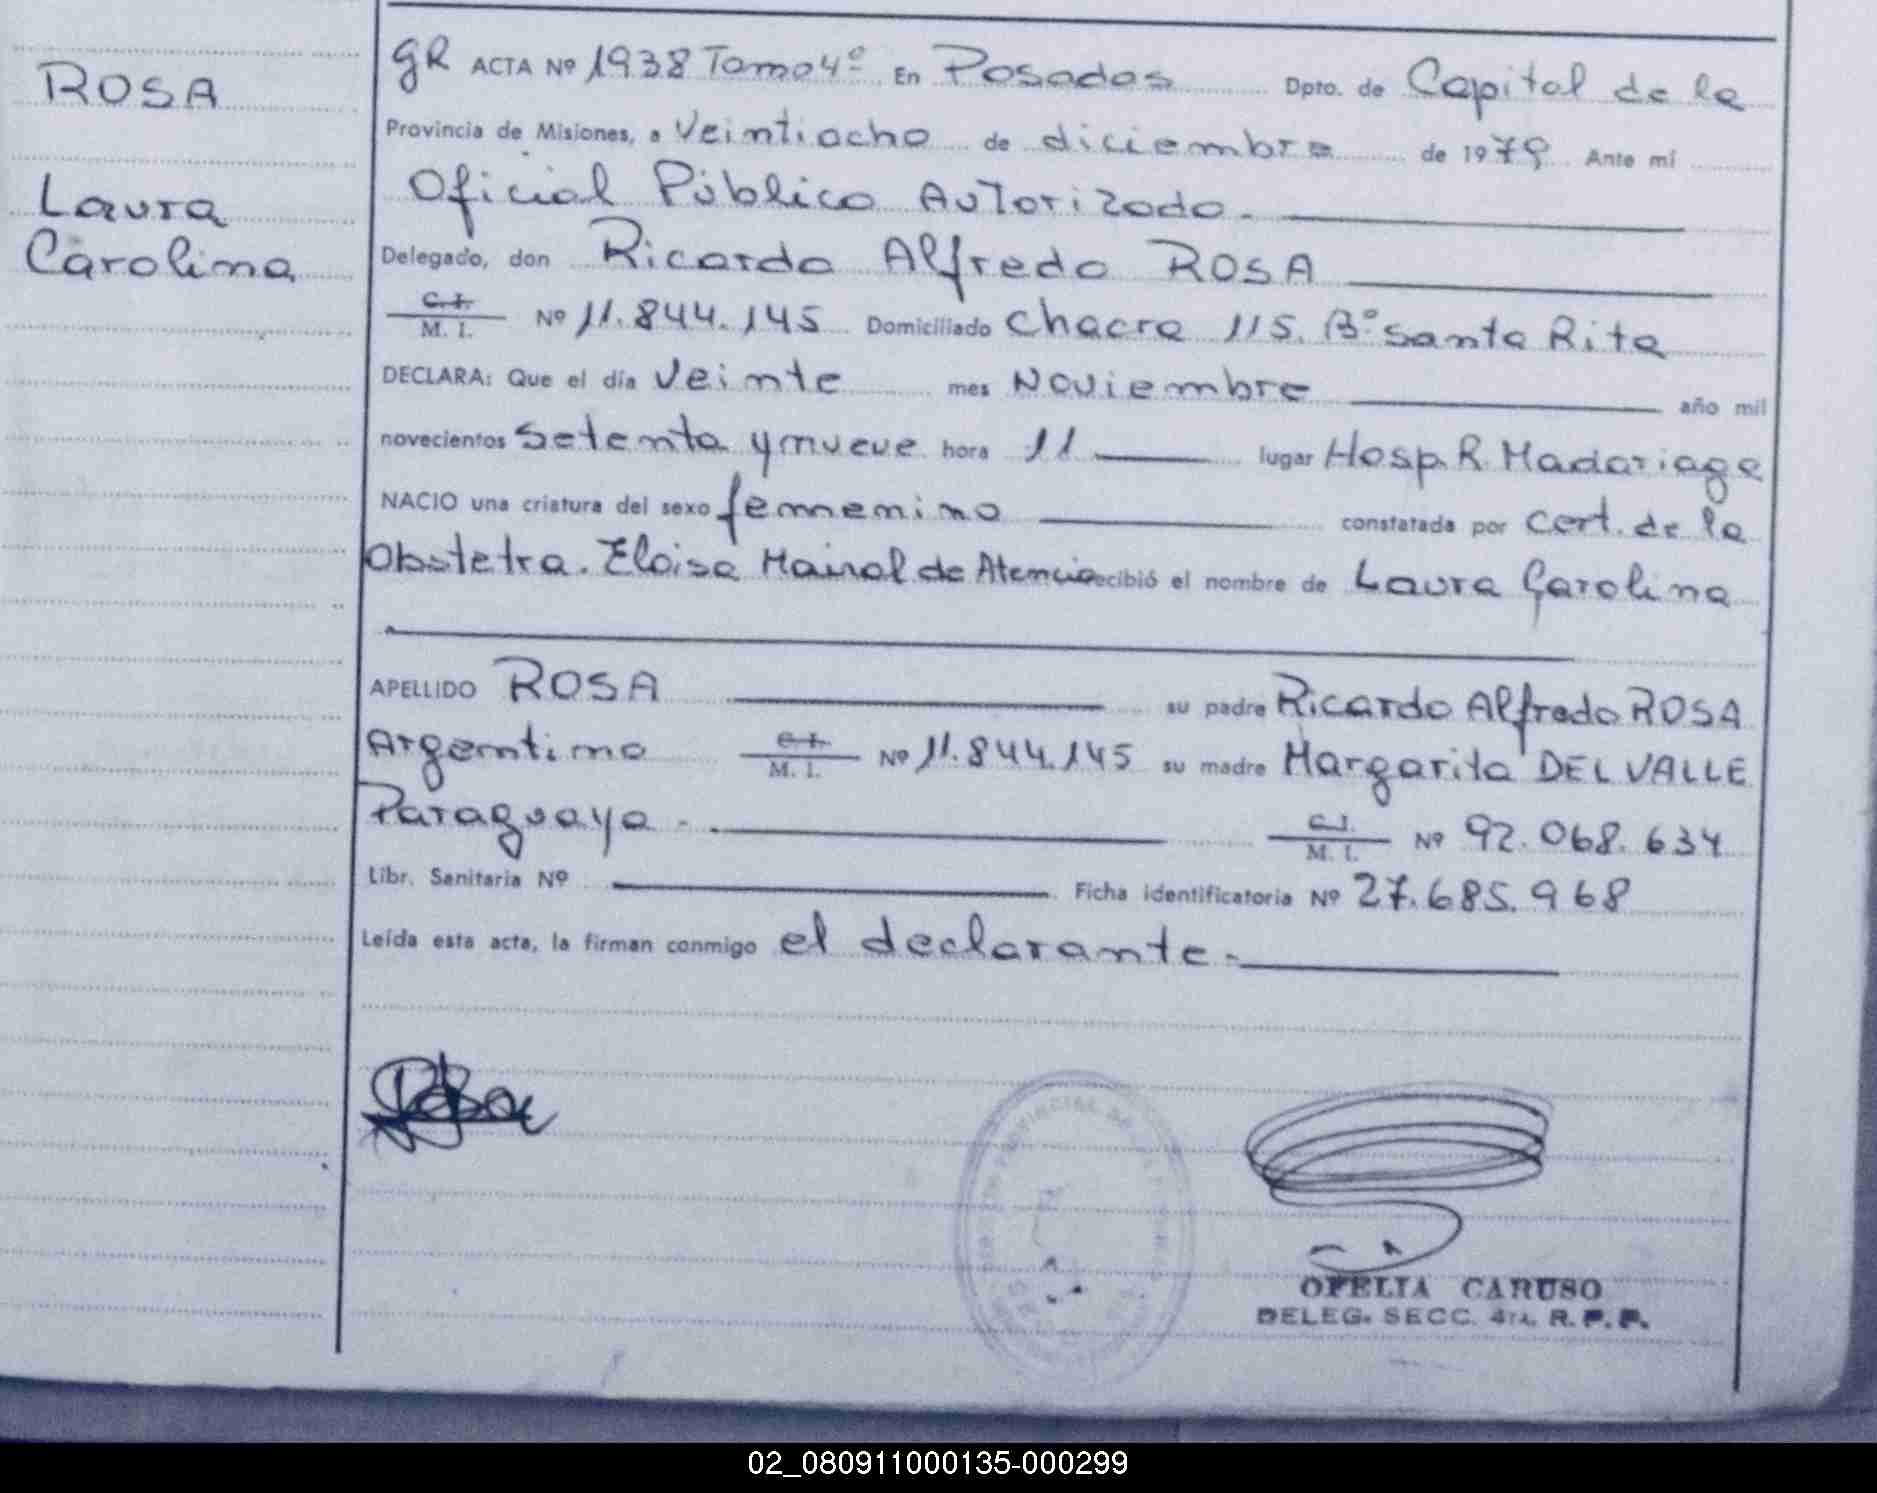 ROSA
Laura
Carolina
GR ACTA Nº 1938 Tomo 4º En Posadas Dpto. de Capital de la
Provincia de Misiones, a Veintiocho de diciembre de 1979 Ante mí
Oficial Público Autorizado.
Delegado, don Ricardo Alfredo ROSA
C. I.
M. I. Nº 11.844.145 Domiciliado Chacra 115. Bº Santa Rita
DECLARA: Que el día Veinte mes Noviembre año mil
novecientos Setenta y nueve hora 11 lugar Hosp. R. Madariaga
NACIO una criatura del sexo femenino constatada por Cert. de la
Obstetra. Eloisa Mairal de Atencio recibió el nombre de Laura Carolina
APELLIDO ROSA su padre Ricardo Alfredo ROSA
Argentino C. I. M. I. Nº 11.844.145 su madre Margarita DEL VALLE
Paraguaya - C. I. M. I. Nº 92.068.634
Libr. Sanitaria Nº Ficha identificatoria Nº 27.685.968
Leída esta acta, la firman conmigo el declarante.
OFELIA CARUSO
DELEG. SECC. 4ta. R. P. P.
02_080911000135-000299